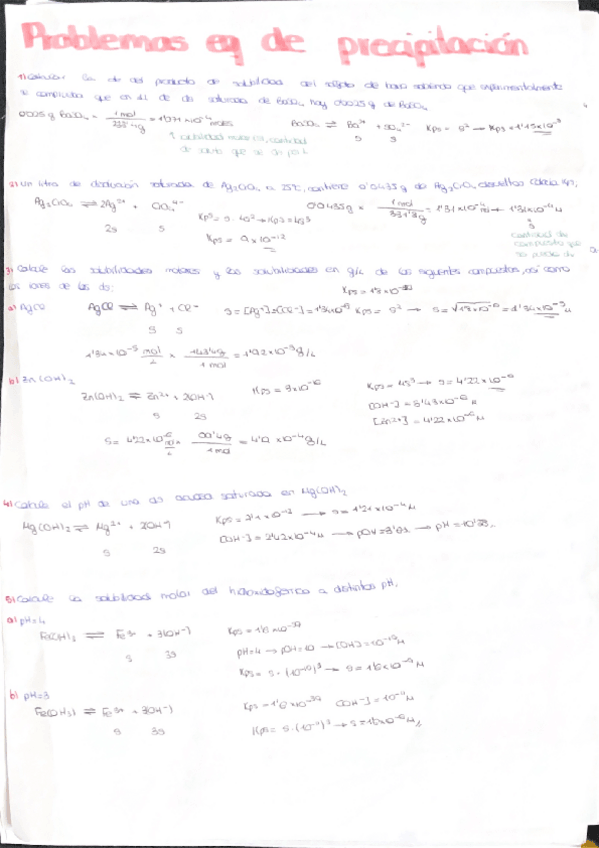 Problemas eq de precipitación
1) Calcular la cte del producto de solubilidad del sulfato de bario sabiendo que experimentalmente
se comprueba que en 1L de ds saturada de BaSO4 hay 0'0025 g de BaSO4
0'0025 g BaSO4 × 1 mol / 233'4g = 1'071 × 10⁻⁵ moles BaSO4 ⇌ Ba²⁺ + SO4²⁻ Kps = s² → Kps = 1'15×10⁻
s s
solubilidad molar (s), cantidad
2) Un litro de disolución saturada de Ag2CrO4 a 25°C, contiene 0'0435 g de Ag2CrO4 disueltos. Calcula Kps
Ag2CrO4 ⇌ 2Ag²⁺ + CrO4⁴⁻ 0'0435g × 1 mol / 331'3g = 1'31×10⁻⁴ → 1'31×10⁻⁴ M
2s s Kps = s · 4s² → Kps = 4s³
Kps = 9 × 10⁻¹²
cantidad de
compuesto que
se puede
3) Calcular las solubilidades molares y las solubilidades en g/L de los siguientes compuestos, así como
los iones de las ds:
a) AgCl AgCl ⇌ Ag⁺ + Cl⁻ s = [Ag⁺] = [Cl⁻] = 1'34×10⁻⁵ Kps = s²
s s
1'34 × 10⁻⁵ mol/L × 143'4g / 1 mol = 1'92 × 10⁻³ g/L
b) Zn(OH)2
Zn(OH)2 ⇌ Zn²⁺ + 2OH⁻ Kps = 4s³ → s = 4'22×10⁻⁶
s 2s [OH⁻] = 8'43×10⁻⁶ M
[Zn²⁺] = 4'22×10⁻⁶ M
4) Calcule el pH de una ds acuosa saturada en Mg(OH)2
Mg(OH)2 ⇌ Mg²⁺ + 2OH⁻ → s = 1'21×10⁻⁴ M
s 2s [OH⁻] = 2'42×10⁻⁴ M
5) Calcule la solubilidad molar del hidróxido férrico a distintos pH.
a) pH=4
Fe(OH)3 ⇌ Fe³⁺ + 3(OH⁻)
s 3s pH=4 → pOH=10 → [OH⁻] = 10⁻¹⁰ M
Kps = s · (10⁻¹⁰)³ → s = 1'6×10⁻⁹ M
b) pH=3
Fe(OH3) ⇌ Fe³⁺ + 3(OH⁻)
s 3s